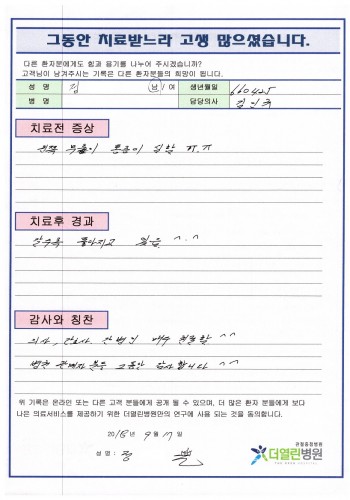 그동안 치료받느라 고생 많으셨습니다.
다른 환자분에게도 힘과 용기를 나누어 주시겠습니까?
고객님이 남겨주시는 기록은 다른 환자분들의 희망이 됩니다.
성 명 정 남 / 여 생년월일 660425
병 명 담당의사
치료전 증상
왼쪽 무릎이 통증이 심함 ㅠ.ㅠ
치료후 경과
갈수록 좋아지고 있음 ^.^
감사와 칭찬
의사, 간호사 간병인 매우 친절함 ^^
병원 관계자분들 그동안 감사합니다 ^^
위 기록은 온라인 또는 다른 고객 분들에게 공개 될 수 있으며, 더 많은 환자 분들에게 보다
나은 의료서비스를 제공하기 위한 더열린병원만의 연구에 사용 되는 것을 동의합니다.
2018년 9월 17일
성 명 : 정
관절중점병원
더열린병원